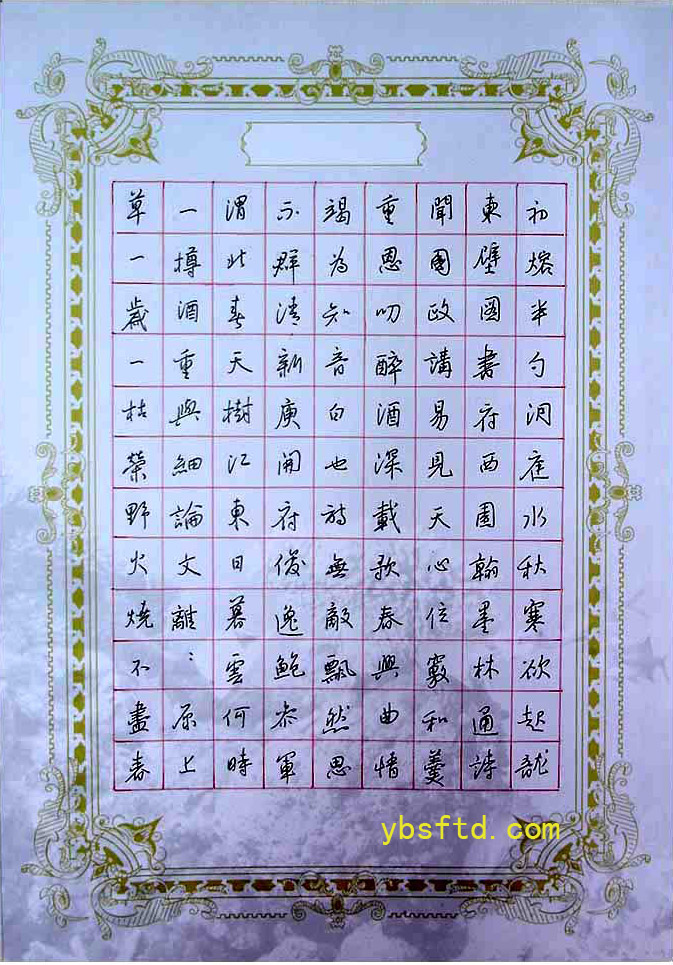 初熔半勺洞庭水秋寒欲起龍
東壁圖書府西園翰墨林通詩
聞國政講易見天心位竅和羹
重恩叨醉酒深載歌春興曲情
竭為知音白也詩無敵飄然思
不群清新庾開府俊逸鮑參軍
渭北春天樹江東日暮雲何時
一樽酒重與細論文離：原上
草一歲一枯榮野火燒不盡春
ybsftd.com